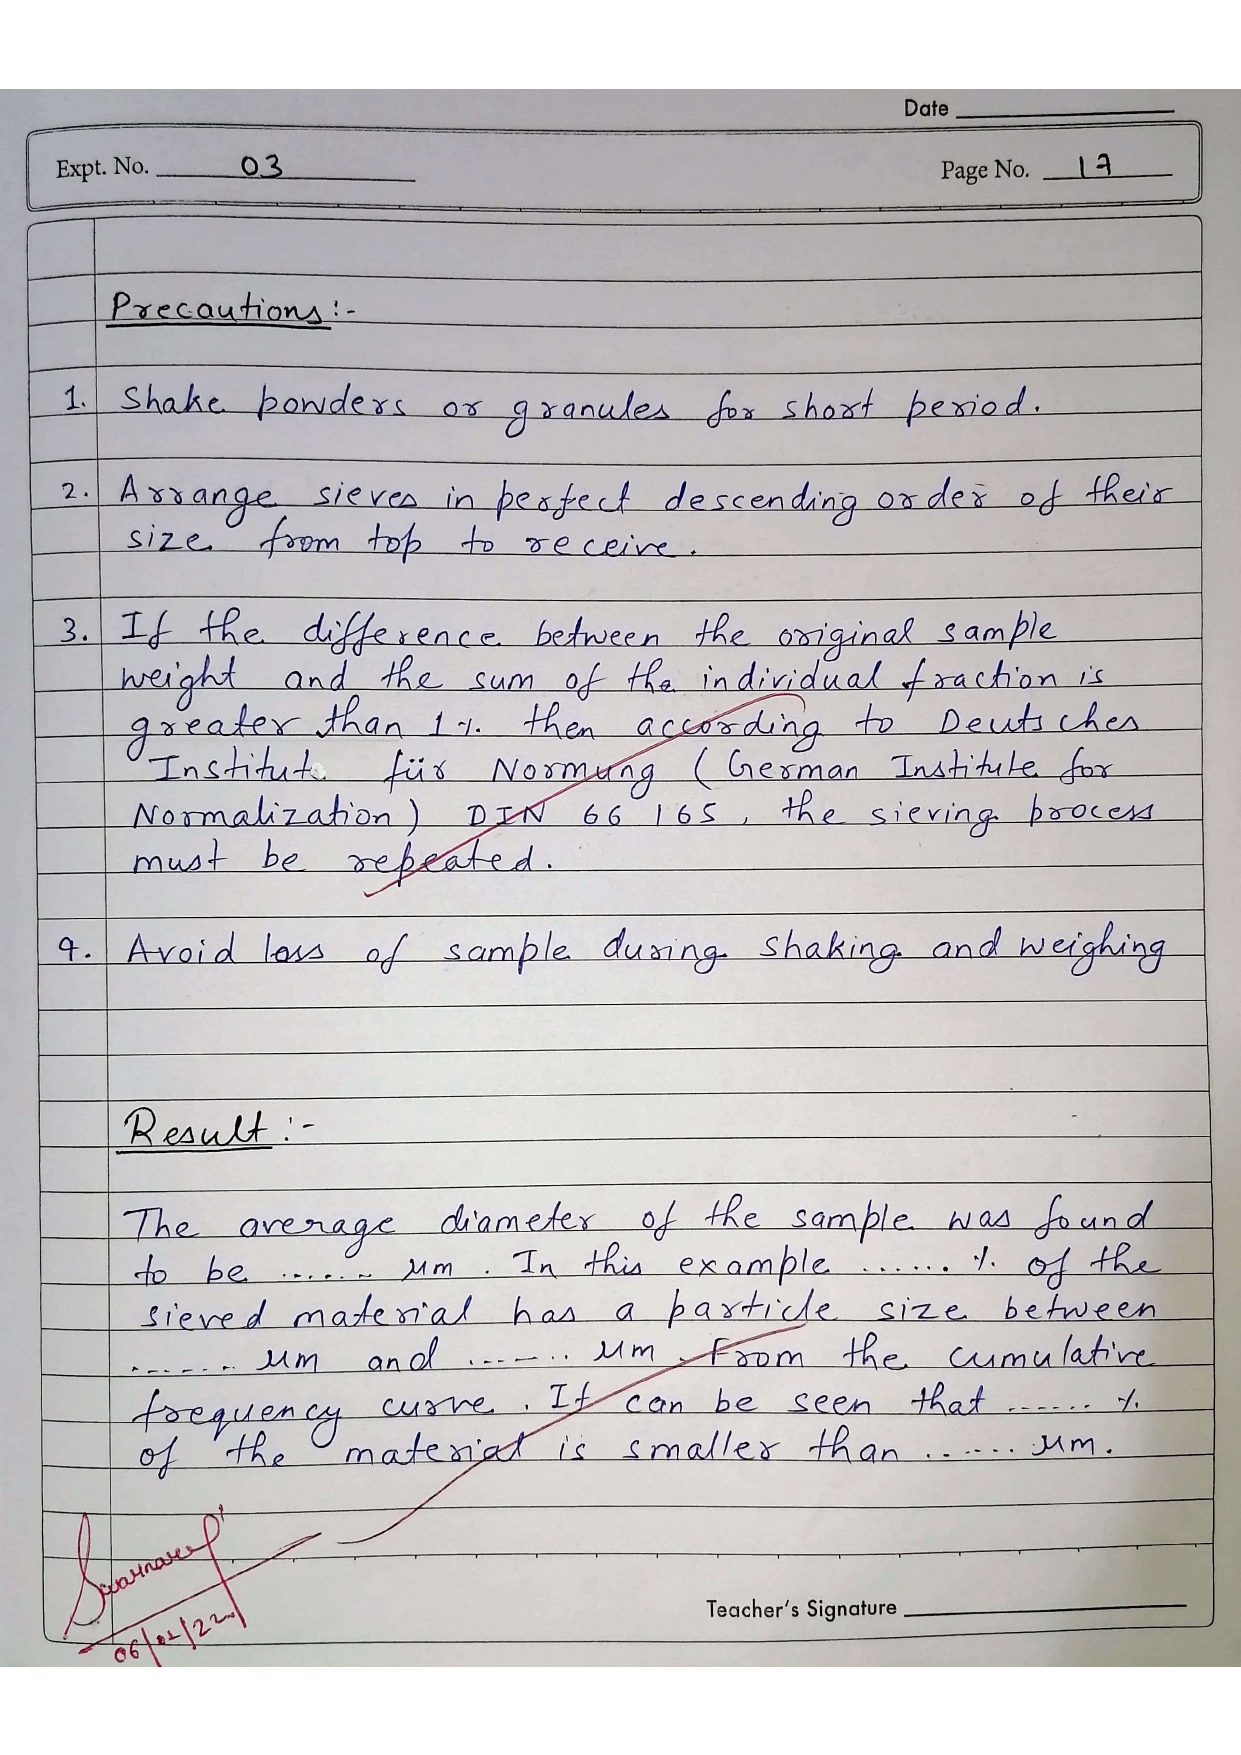 Date
Expt. No. 03
Page No. 17
Precautions :-
1. Shake powders or granules for short period.
2. Arrange sieves in perfect descending order of their
size from top to receive.
3. If the difference between the original sample
weight and the sum of the individual fraction is
greater than 1% then according to Deutsches
Institute für Normung (German Institute for
Normalization) DIN 66 165, the sieving process
must be repeated.
4. Avoid loss of sample during shaking and weighing
Result :-
The average diameter of the sample was found
to be ....... µm. In this example ...... % of the
sieved material has a particle size between
....... µm and ....... µm. From the cumulative
frequency curve. It can be seen that ...... %
of the material is smaller than ...... µm.
Teacher's Signature